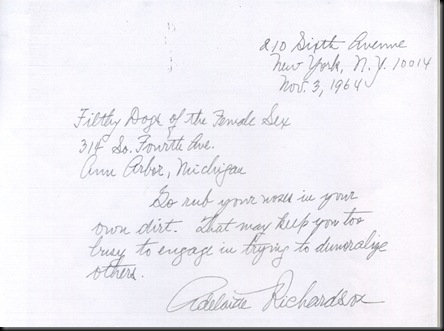 210 Sixth Avenue
New York, N.Y. 10014
Nov. 3, 1964
Filthy Dogs of the Female Sex
314 So. Fourth Ave.
Ann Arbor, Michigan
Go rub your noses in your
own dirt. That may keep you too
busy to engage in trying to demoralize
others.
Adelaide Richardson